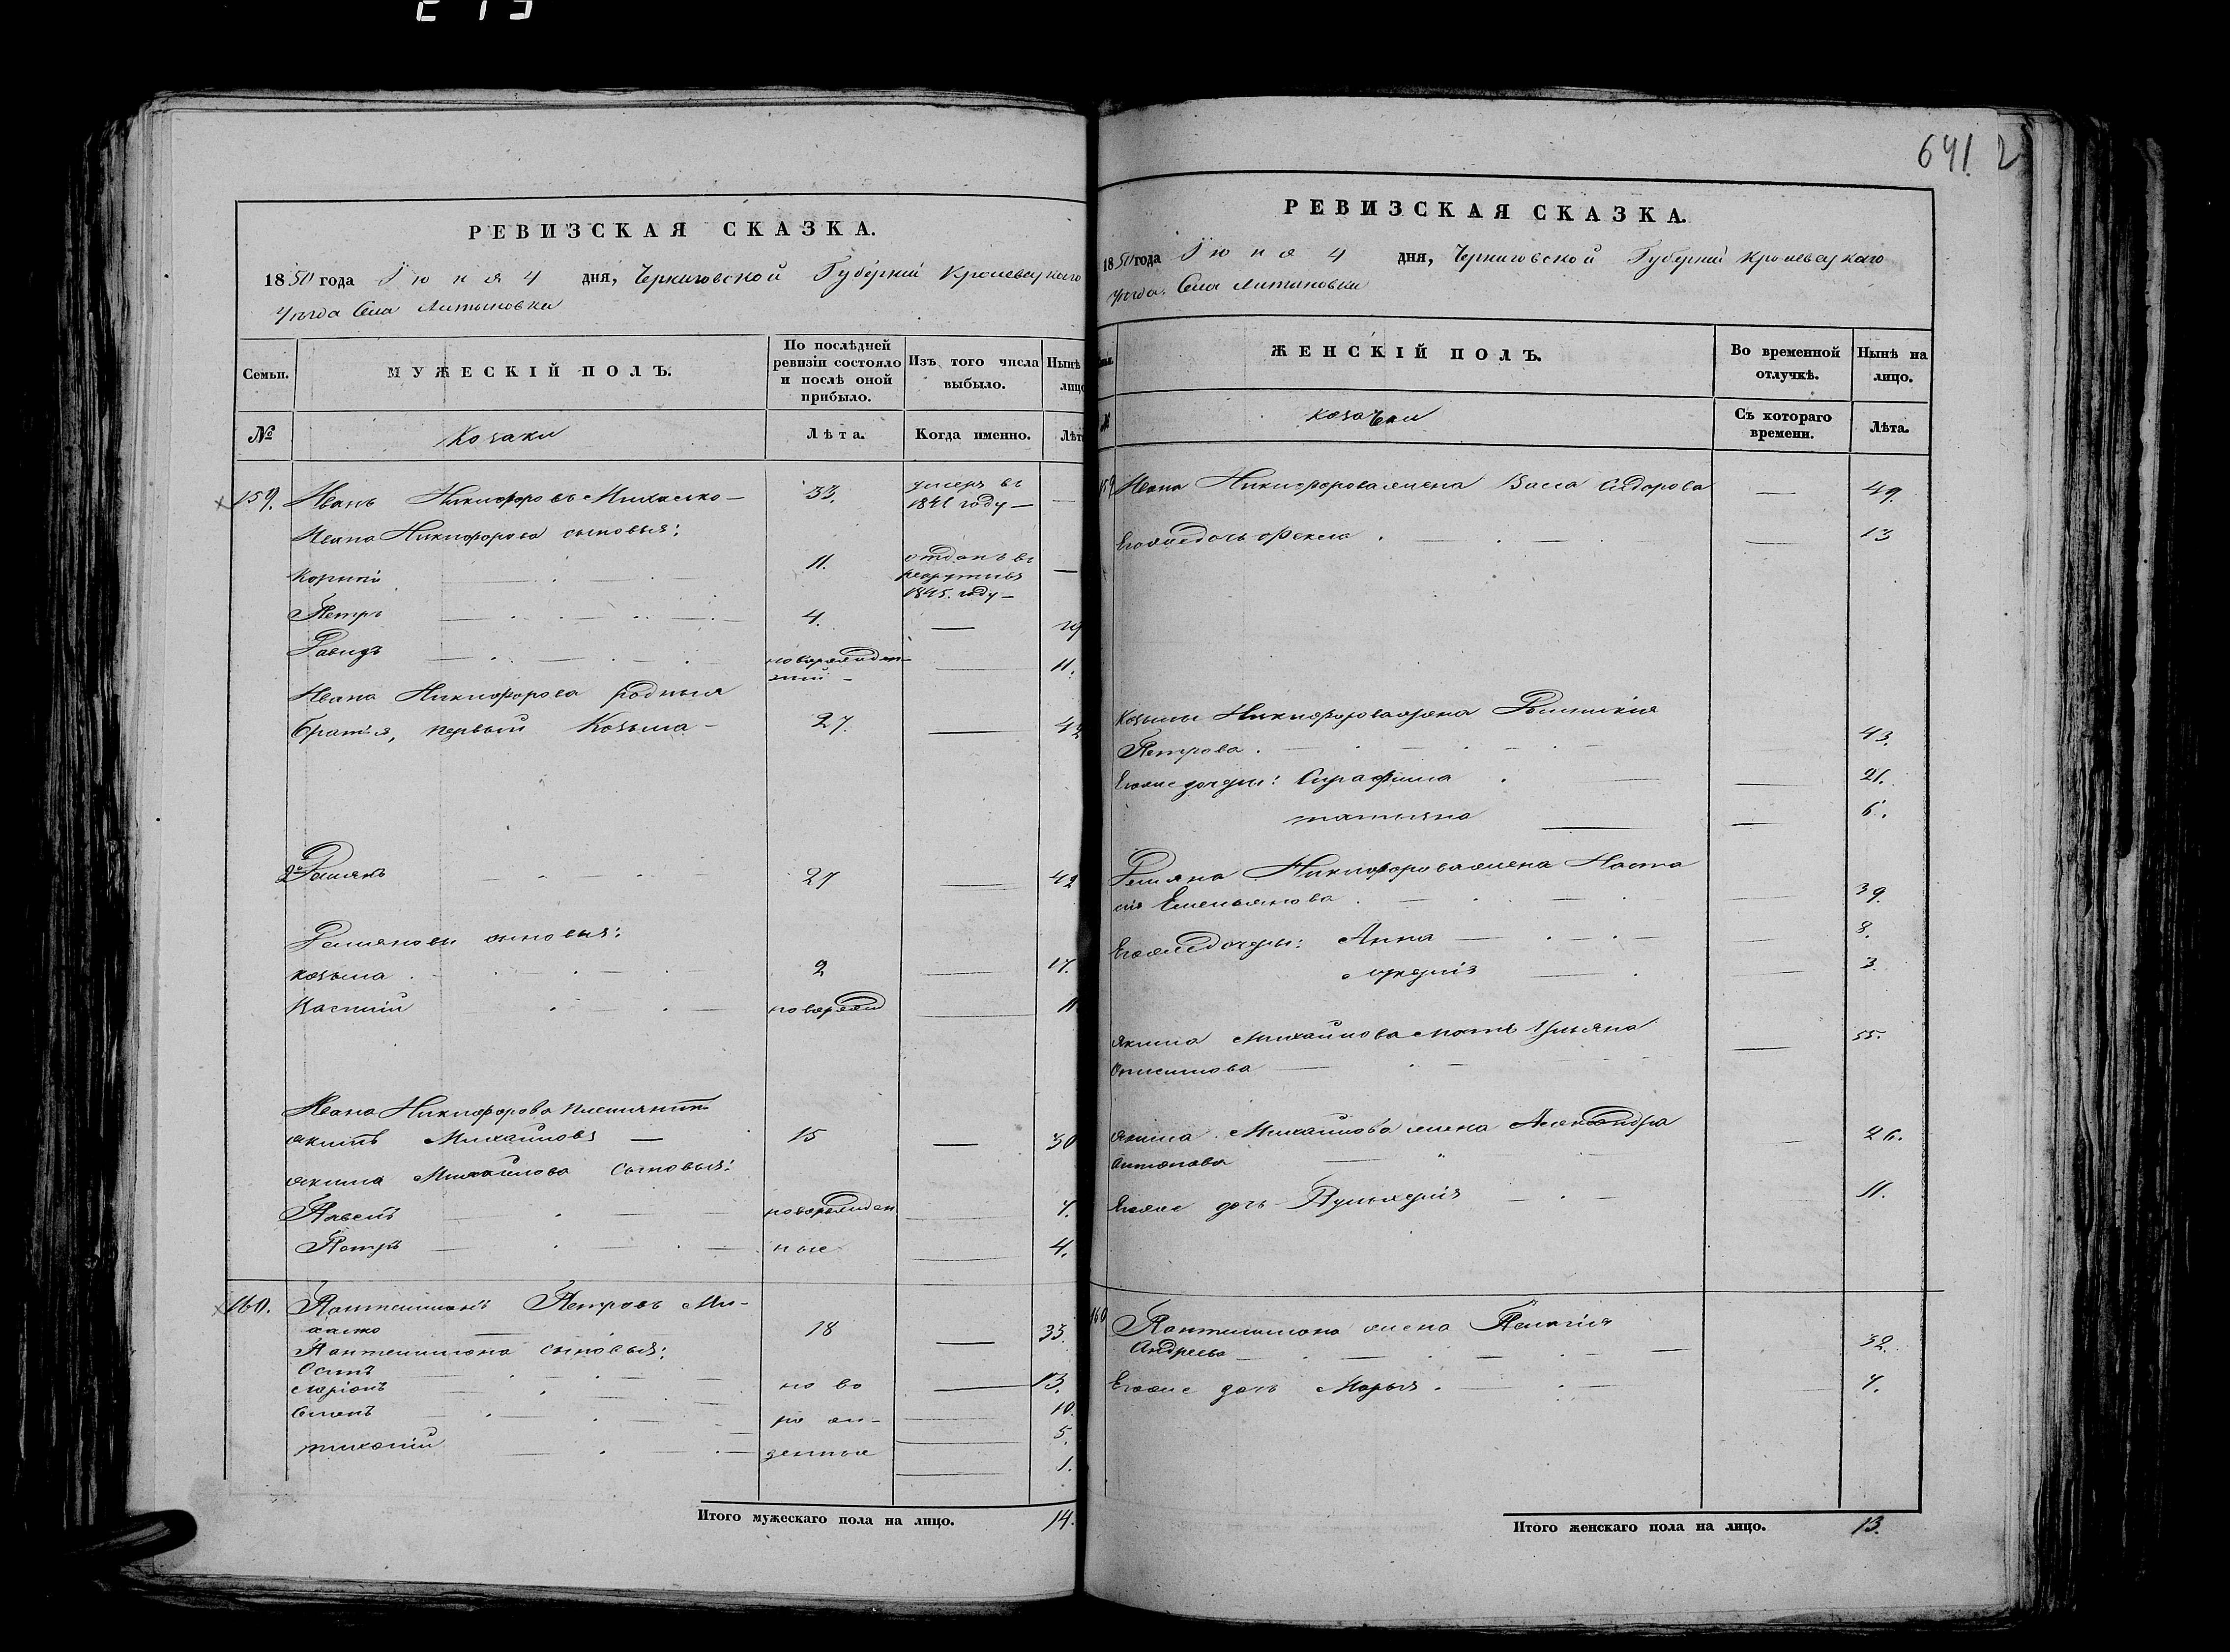 641 2
РЕВИЗСКАЯ СКАЗКА.
1850 года Іюня 4 дня, Черниговской Губерніи Кролевецкаго
уѣзда Села Литвиновки
Семьи.
МУЖЕСКІЙ ПОЛЪ.
По послѣдней
ревизіи состояло
и послѣ оной
прибыло.
Изъ того числа
выбыло.
Нынѣ
лицо
№
Козаки
Лѣта.
Когда именно.
Лѣт
159. Иванъ Никифоровъ Михалко — 33. умеръ въ
1841 году —
Ивана Никифорова сыновья:
Корнѣй 11. отданъ въ
рекруты
1845. году —
Петръ 4. — 19
Давидъ новорожден-
ный — 11.
Ивана Никифорова родныя
братья, первый Козьма — 27. — 42
2й Демянъ 27 — 42
Демяновы сыновья:
Козьма 2 — 17.
новорожд — 11
Ивана Никифорова племянникъ
Якимъ Михайловъ — 15 — 30
Якима Михайлова сыновья:
Павелъ новорожден — 7.
Петръ ные — 4.
160. Пантелимонъ Петровъ Ми-
халко 18 — 33.
Пантелимона сыновья:
Осипъ но во — 13.
Маріонъ 10.
Семенъ рож — 5.
денные — 1.
Итого мужескаго пола на лицо. 14.
РЕВИЗСКАЯ СКАЗКА.
1850 года Іюня 4 дня, Черниговской Губерніи Кролевецкаго
уѣзда. Села Литвиновки
ЖЕНСКІЙ ПОЛЪ.
Во временной
отлучкѣ.
Нынѣ на
лицо.
козачки
Съ котораго
времени.
Лѣта.
159 Ивана Никифорова жена Васса Сидорова — 49.
Егоже дочь Фекла — 13
Козьмы Никифорова жена
Петрова 43.
Егоже дочери: Серафима — 21.
Татьяна — 6.
Демяна Никифорова жена Наста
сія Емельянова — 39.
Егоже дочери: Анна — 8.
— 3.
Якима Михайлова мать Ульяна
Онисимова — 55.
Якима Михайлова жена Александра
Антонова — 26.
Егоже дочь Пульхерія 11.
160 Пантелимона жена Пелагія
Андреева — 32.
Егоже дочь Марья 7.
Итого женскаго пола на лицо. 13.